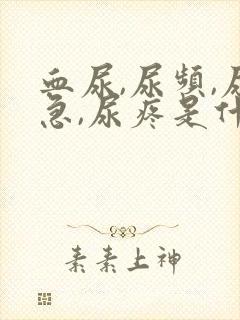 血尿,尿頻,尿
急,尿疼是什
素素上神